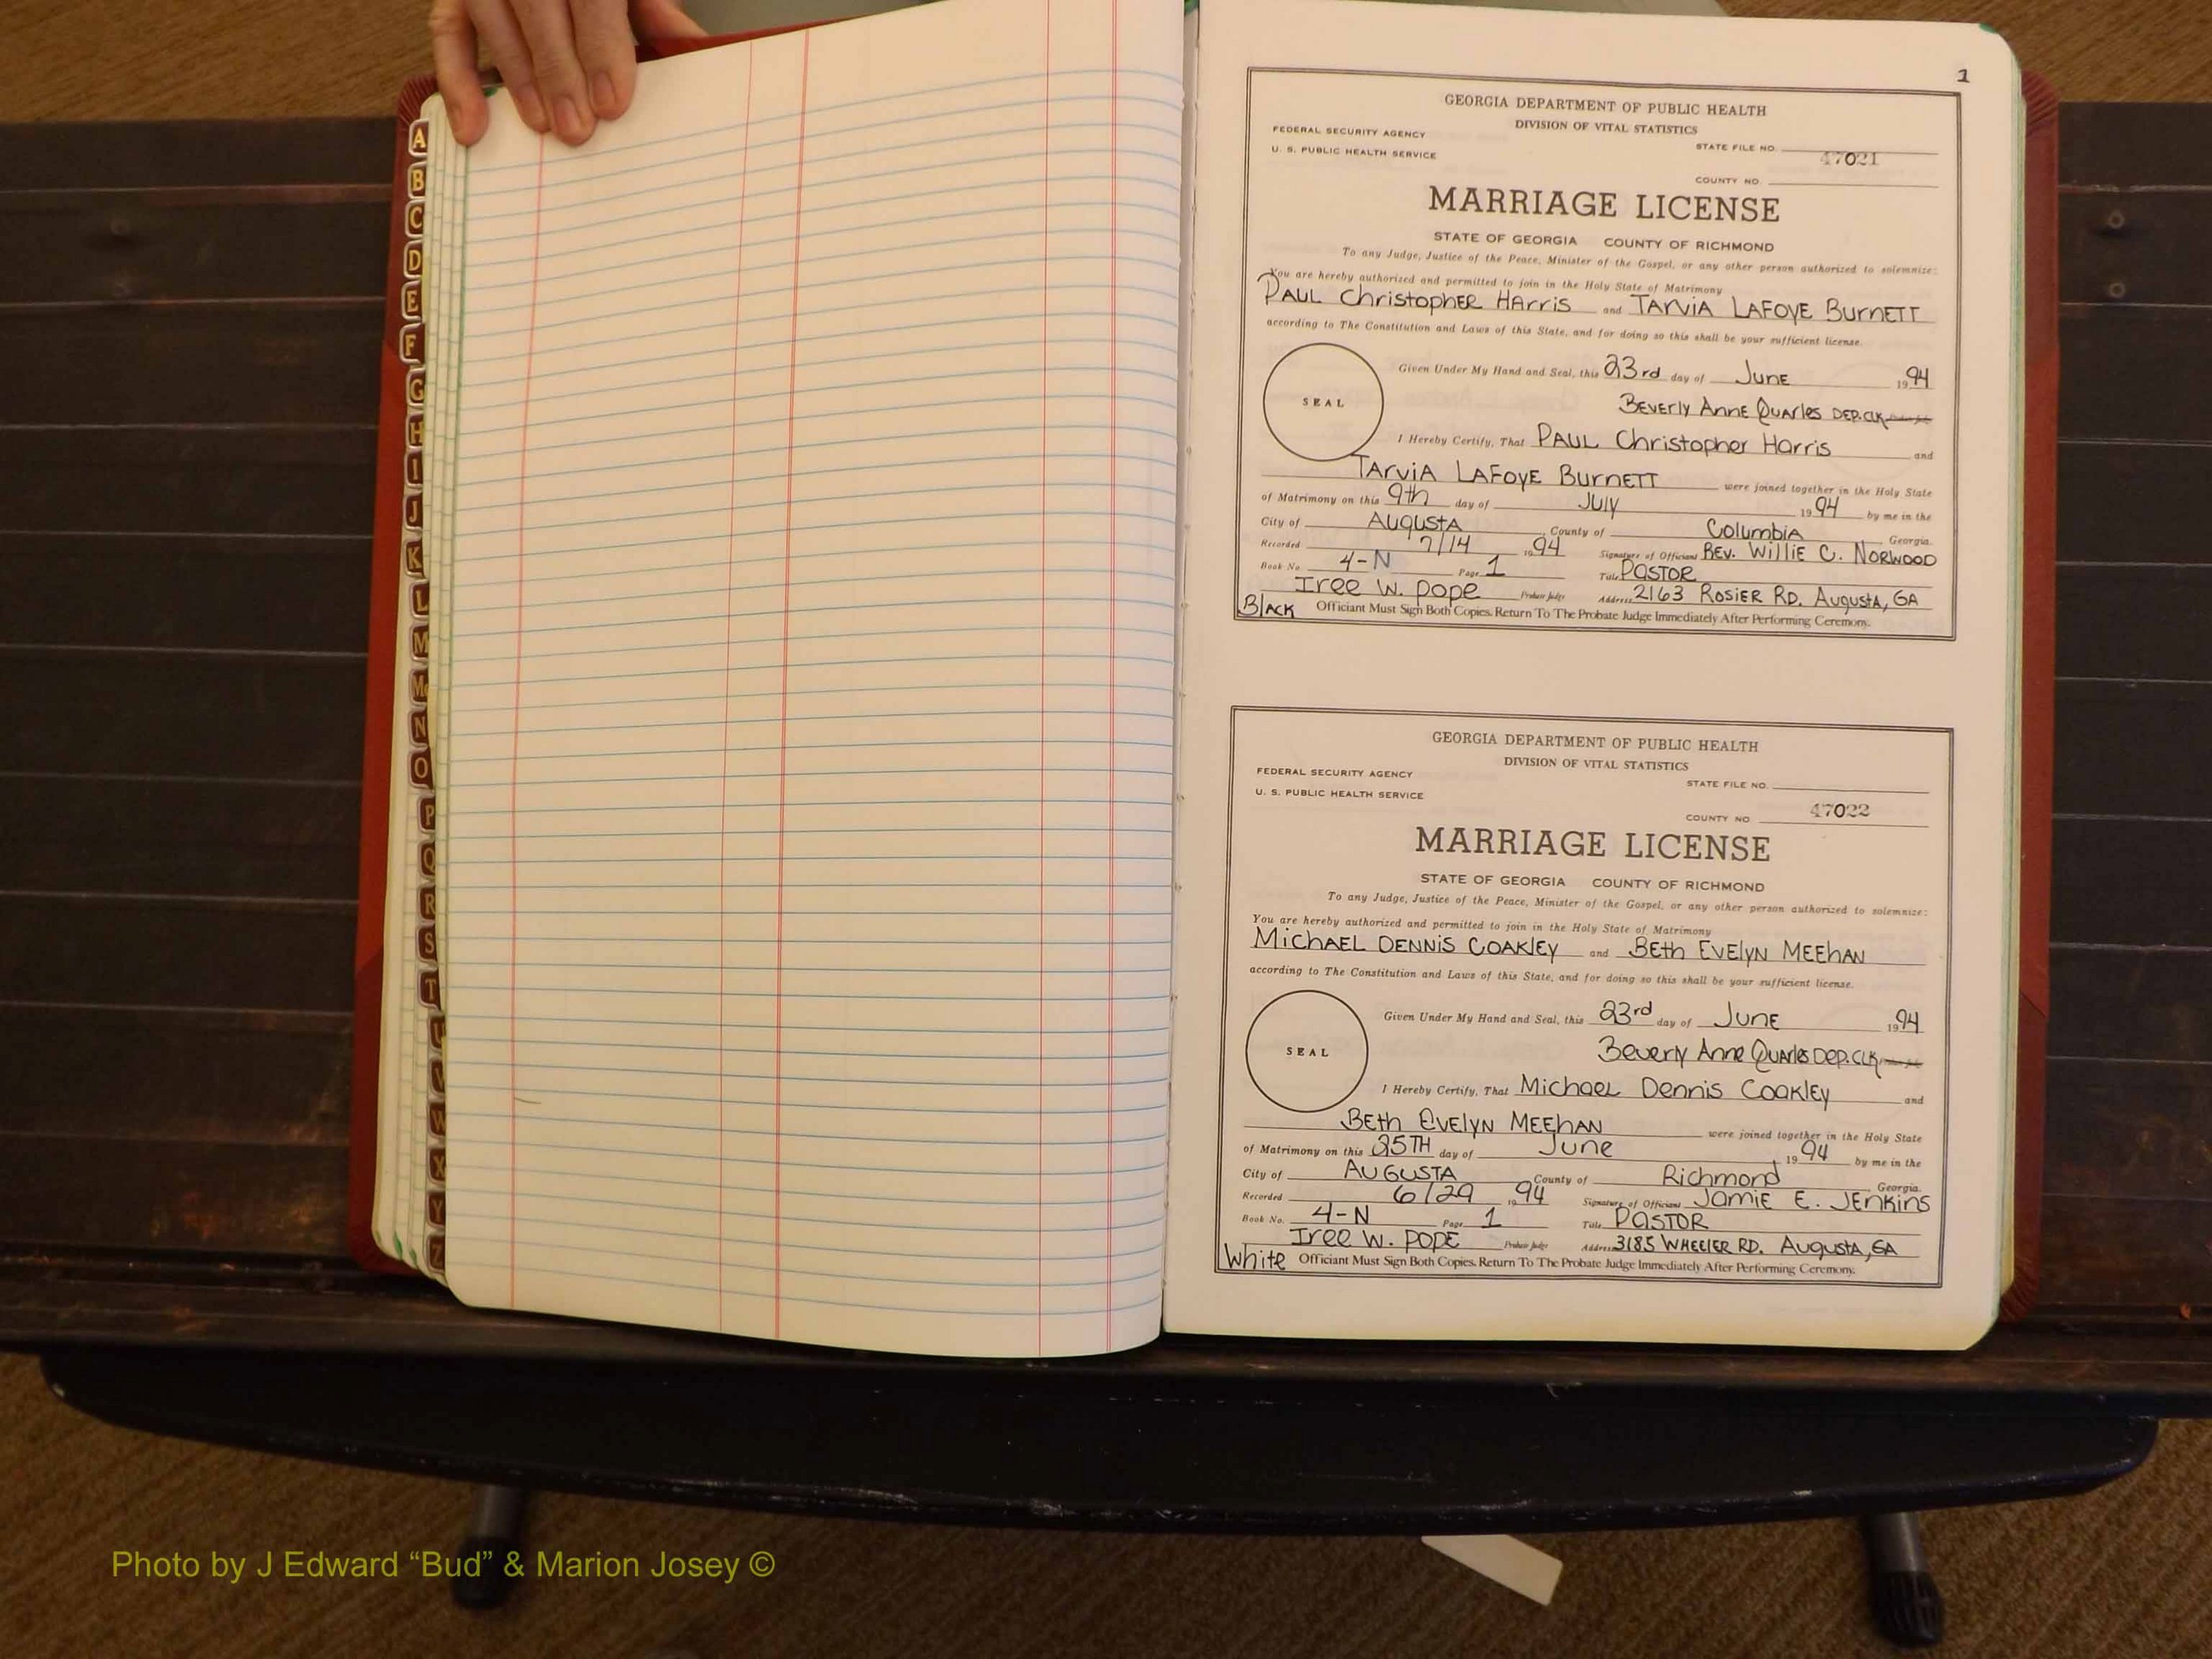 A
B
C
D
E
F
G
H
I
J
K
L
M
Mc
N
O
P
Q
R
S
T
U
V
W
X
Y
Z
1
GEORGIA DEPARTMENT OF PUBLIC HEALTH
DIVISION OF VITAL STATISTICS
FEDERAL SECURITY AGENCY
U. S. PUBLIC HEALTH SERVICE
STATE FILE NO.
47021
COUNTY NO.
MARRIAGE LICENSE
STATE OF GEORGIA COUNTY OF RICHMOND
To any Judge, Justice of the Peace, Minister of the Gospel, or any other person authorized to solemnize:
You are hereby authorized and permitted to join in the Holy State of Matrimony
PAUL Christopher Harris and TARVIA LAFOYE BURNETT
according to The Constitution and Laws of this State, and for doing so this shall be your sufficient license.
Given Under My Hand and Seal, this 23rd day of June 1994
SEAL
Beverly Anne Quarles DEP.CLK
I Hereby Certify, That PAUL Christopher Harris and
TARVIA LAFOYE BURNETT were joined together in the Holy State
of Matrimony on this 9th day of July 1994 by me in the
City of Augusta County of Columbia Georgia.
Recorded 7/14 1994 Signature of Officiant Rev. Willie C. Norwood
Book No. 4-N Page 1 Title Pastor
Iree W. Pope Probate Judge Address 2163 Rosier Rd. Augusta, GA
Black Officiant Must Sign Both Copies. Return To The Probate Judge Immediately After Performing Ceremony.
GEORGIA DEPARTMENT OF PUBLIC HEALTH
DIVISION OF VITAL STATISTICS
FEDERAL SECURITY AGENCY
U. S. PUBLIC HEALTH SERVICE
STATE FILE NO.
COUNTY NO 47022
MARRIAGE LICENSE
STATE OF GEORGIA COUNTY OF RICHMOND
To any Judge, Justice of the Peace, Minister of the Gospel, or any other person authorized to solemnize:
You are hereby authorized and permitted to join in the Holy State of Matrimony
Michael Dennis Coakley and Beth Evelyn Meehan
according to The Constitution and Laws of this State, and for doing so this shall be your sufficient license.
Given Under My Hand and Seal, this 23rd day of June 1994
SEAL
Beverly Anne Quarles Dep.Clk
I Hereby Certify, That Michael Dennis Coakley and
Beth Evelyn Meehan were joined together in the Holy State
of Matrimony on this 25TH day of June 1994 by me in the
City of AUGUSTA County of Richmond Georgia.
Recorded 6/29 1994 Signature of Officiant Jamie E. Jenkins
Book No. 4-N Page 1 Title Pastor
Iree W. Pope Probate Judge Address 3185 Wheeler Rd. Augusta, GA
White Officiant Must Sign Both Copies. Return To The Probate Judge Immediately After Performing Ceremony.
Photo by J Edward “Bud” & Marion Josey ©